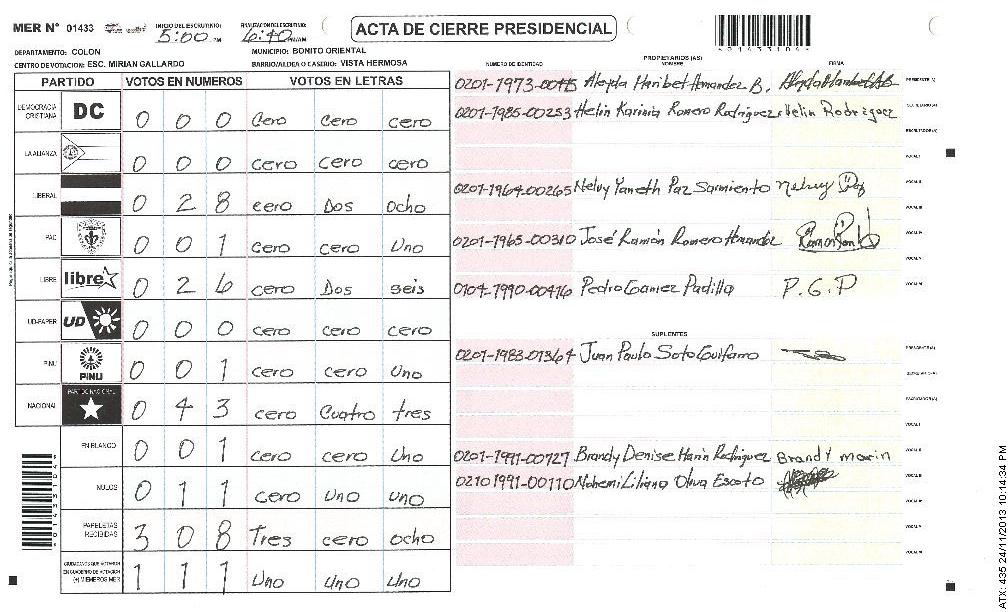 MER N° 01433 INICIO DEL ESCRUTINIO: 5:00 PM FINALIZACION DEL ESCRUTINIO: 6:40 PM/AM ACTA DE CIERRE PRESIDENCIAL
DEPARTAMENTO: COLON MUNICIPIO: BONITO ORIENTAL
CENTRO DE VOTACION: ESC. MIRIAN GALLARDO BARRIO/ALDEA O CASERIO: VISTA HERMOSA
PARTIDO VOTOS EN NUMEROS VOTOS EN LETRAS
DEMOCRACIA CRISTIANA DC 0 0 0 cero cero cero
LA ALIANZA 0 0 0 cero cero cero
LIBERAL 0 2 8 cero Dos ocho
PAC 0 0 1 cero cero uno
LIBRE libre 0 2 6 cero Dos seis
UD-FAPER UD 0 0 0 cero cero cero
PINU PINU 0 0 1 cero cero uno
NACIONAL PARTIDO NACIONAL 0 4 3 cero cuatro tres
EN BLANCO 0 0 1 cero cero uno
NULOS 0 1 1 cero uno uno
PAPELETAS RECIBIDAS 3 0 8 Tres cero ocho
CIUDADANOS QUE VOTARON EN CUADERNO DE VOTACION (+) MIEMBROS MER 1 1 1 uno uno uno
PROPIETARIOS (AS)
NUMERO DE IDENTIDAD NOMBRE FIRMA
0201-1973-00415 Aleyda Maribel Hernandez B. PRESIDENTE(A)
0201-1985-00253 Helin Karinia Romero Rodriguez Helin Rodriguez SECRETARIO(A)
ESCRUTADOR(A)
VOCAL I
0201-1964-00265 Nelvy Yaneth Paz Sarmiento Nelvy Paz VOCAL II
VOCAL III
0201-1965-00310 José Ramón Romero Hernandez VOCAL IV
VOCAL V
0104-1990-00416 Pedro Gamez Padilla P.G.P VOCAL VI
SUPLENTES
0201-1983-01364 Juan Paulo Soto Guifarro PRESIDENTE(A)
SECRETARIO(A)
ESCRUTADOR(A)
VOCAL I
0201-1991-00727 Brandy Denise Marin Rodriguez Brandy marin VOCAL II
02101991-00110 Nohemi Liliana Oliva Escoto VOCAL III
VOCAL V
VOCAL VI
ATX: 435 24/11/2013 10:14:34 PM